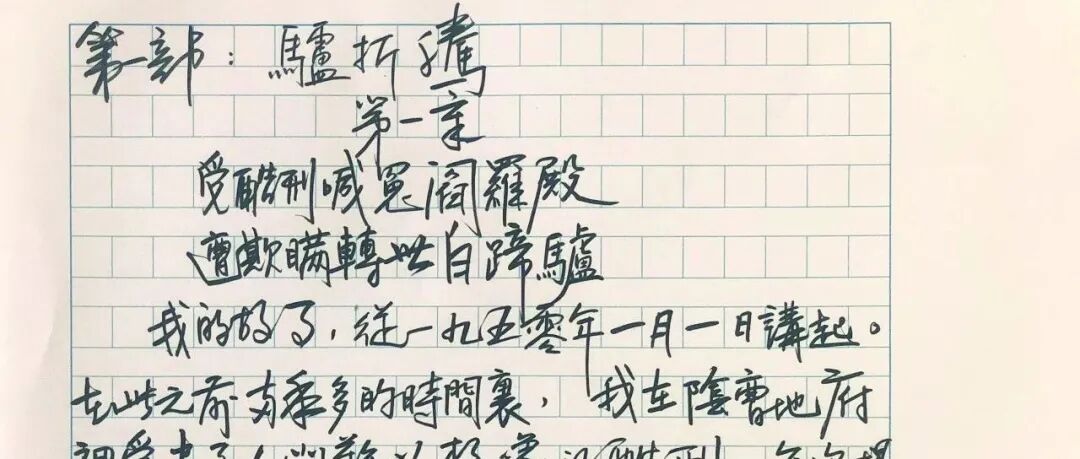 第一部：驢折騰
第一章
受酷刑喊冤閻羅殿
遭欺瞞轉世白蹄驢
我的故事，從一九五零年一月一日講起。
在此之前两年多的時間裏，我在陰曹地府